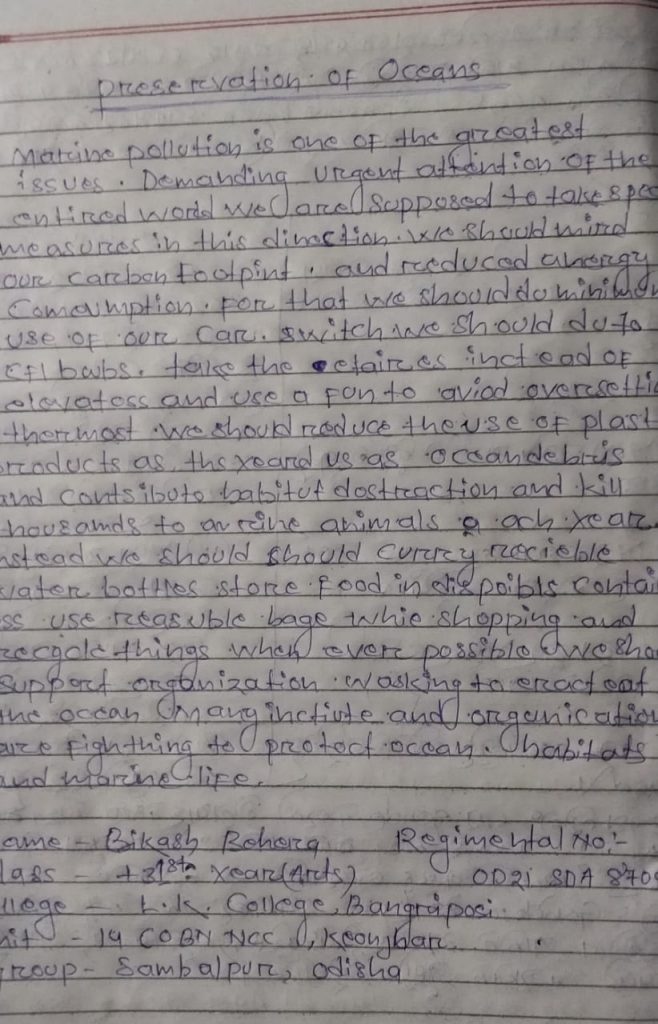 preservation of Oceans
Marine pollution is one of the greatest
issues. Demanding urgent attention of the
entired world we are supposed to take spec
measures in this direction. we should mind
our carbon footpint. and reduced anergy
Comsumption. For that we should do minimum
use of our car. switch we should do to
cfl bwbs. take the staires inctead of
elevatoss and use a fan to aviod oversettin
thermost we should reduce the use of plast
products as ths xeard us as ocean debris
and contsibute babitut dostraction and kill
housands to anreine animals each xear.
nstead we should should curry recieble
water bottles store food in dispoibls contai
ss use reasuble bage whie shopping and
recycle things when ever possible we sho
support orgonization wasking to eract eat
the ocean many inctiute and organication
are fighthing to protoct ocean. habitats
and marine life.
ame - Bikash Behera Regimental No:-
lass - +3 1st xear (Arts) OD21 SDA 8709
llege - L.K. College, Bangriposi
nit - 14 COBN NCC, Keonjhar.
roup - Sambalpur, odisha